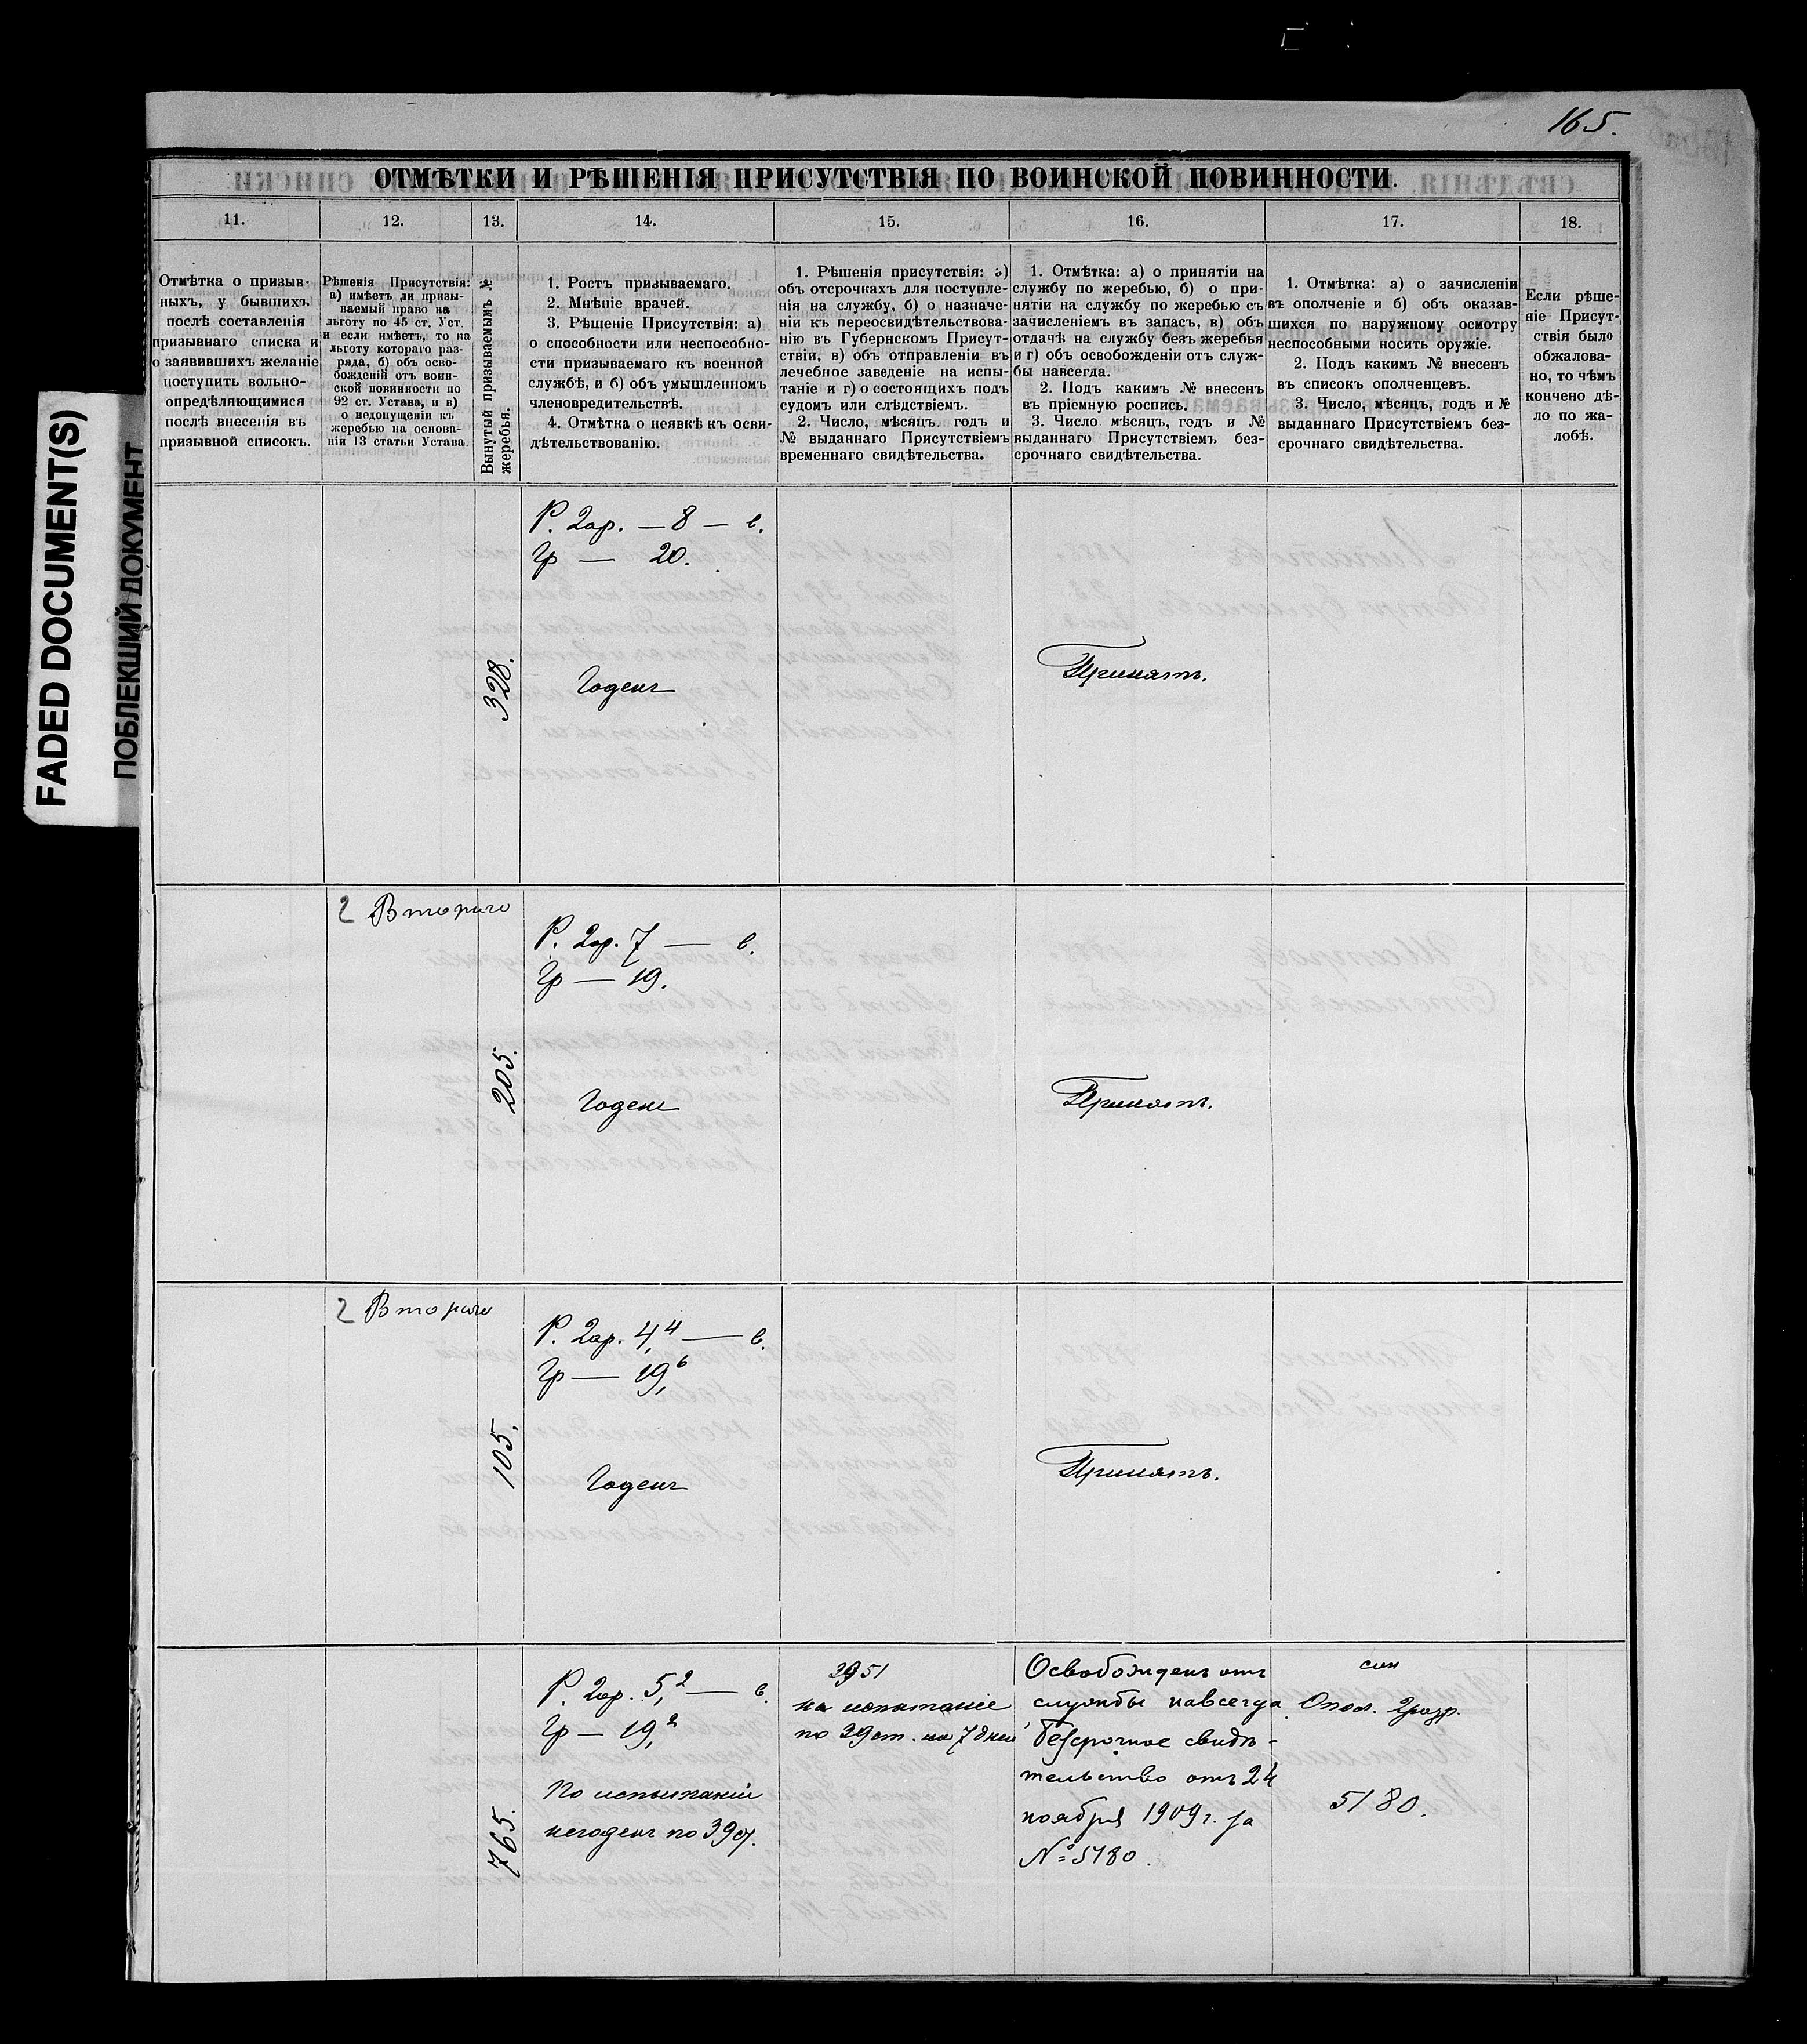 165.
ОТМѢТКИ И РѢШЕНІЯ ПРИСУТСТВІЯ ПО ВОИНСКОЙ ПОВИННОСТИ.
11.
12.
13.
14.
15.
16.
17.
18.
Отмѣтка о призыв-
ныхъ, у бывшихъ
послѣ составленія
призывнаго списка и
о заявившихъ желаніе
поступить вольно-
опредѣляющимися
послѣ внесенія въ
призывной списокъ.
Рѣшенія Присутствія:
а) имѣетъ ли призы-
ваемый право на
льготу по 45 ст. Уст.
и если имѣетъ, то на
льготу котораго раз-
ряда, б) объ осво-
божденіи отъ воин-
ской повинности по
92 ст. Устава, и в)
о недопущеніи къ
жеребью на основа-
ніи 13 статьи Устава.
Вынутый призываемымъ №
жеребья.
1. Ростъ призываемаго.
2. Мнѣніе врачей.
3. Рѣшеніе Присутствія: а)
о способности или неспособно-
сти призываемаго къ военной
службѣ, и б) объ умышленномъ
членовредительствѣ.
4. Отмѣтка о неявкѣ къ осви-
дѣтельствованію.
1. Рѣшенія присутствія: а)
объ отсрочкахъ для поступле-
нія на службу, б) о назначе-
ніи къ переосвидѣтельствова-
нію въ Губернскомъ Присут-
ствіи, в) объ отправленіи въ
лечебное заведеніе на испы-
таніе и г) о состоящихъ подъ
судомъ или слѣдствіемъ.
2. Число, мѣсяцъ, годъ и
№ выданнаго Присутствіемъ
временнаго свидѣтельства.
1. Отмѣтка: а) о принятіи на
службу по жеребью, б) о при-
нятіи на службу по жеребью съ
зачисленіемъ въ запасъ, в) объ
отдачѣ на службу безъ жеребья
и г) объ освобожденіи отъ служ-
бы навсегда.
2. Подъ какимъ № внесенъ
въ пріемную роспись.
3. Число, мѣсяцъ, годъ и №
выданнаго Присутствіемъ без-
срочнаго свидѣтельства.
1. Отмѣтка: а) о зачисленіи
въ ополченіе и б) объ оказав-
шихся по наружному осмотру
неспособными носить оружіе.
2. Подъ какимъ № внесенъ
въ списокъ ополченцевъ.
3. Число, мѣсяцъ, годъ и №
выданнаго Присутствіемъ без-
срочнаго свидѣтельства.
Если рѣше-
ніе Присут-
ствія было
обжалова-
но, то чѣмъ
кончено дѣ-
ло по жа-
лобѣ.
FADED DOCUMENT(S)
ПОБЛЕКШИЙ ДОКУМЕНТ
328.
Р. 2ар. — 8 — в.
Гр — 20.
Годенъ
Принятъ.
2 Втораго
205.
Р. 2ар. 7 — в.
Гр — 19.
Годенъ
Принятъ.
2 Втораго
105.
Р. 2ар. 4,4 — в.
Гр — 19,6
Годенъ
Принятъ.
765.
Р. 2ар. 5,2 — в.
Гр — 19,2
По испытаніи
негоденъ по 39
3951
на испытаніе
по 39 ст. на 7 дней
Освобожденъ отъ
службы навсегда
безсрочное свидѣ-
тельство отъ 24
ноября 1909 г. за
№ 5180.
Опол. 2 разр.
5180.